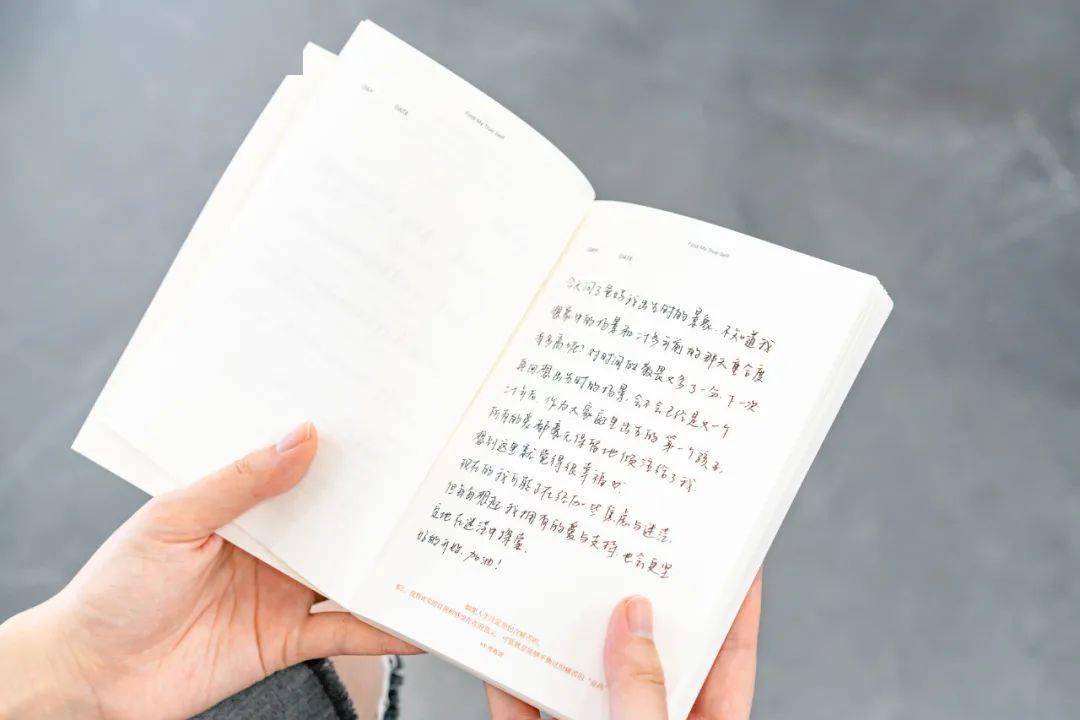 DAY DATE Find My True Self
DAY DATE Find My True Self
今天问了爸妈我出生时的景象，不知道我
想象中的场景和二十多年前的那天重合度
有多高呢？对时间的敬畏又多了一分，下一次
再回想出生时的场景，会不会已经是又一个
二十年后，作为大家庭里出生的第一个孩子，
所有的爱都毫无保留地倾注给了我
想到这里就觉得很幸福
现在的我可能正在经历一些焦虑与迷茫，
但每每想起我拥有的爱与支持，也会更坚
定地在迷茫中探索
好的开始，加油！
如果人生注定要包含痛苦的，